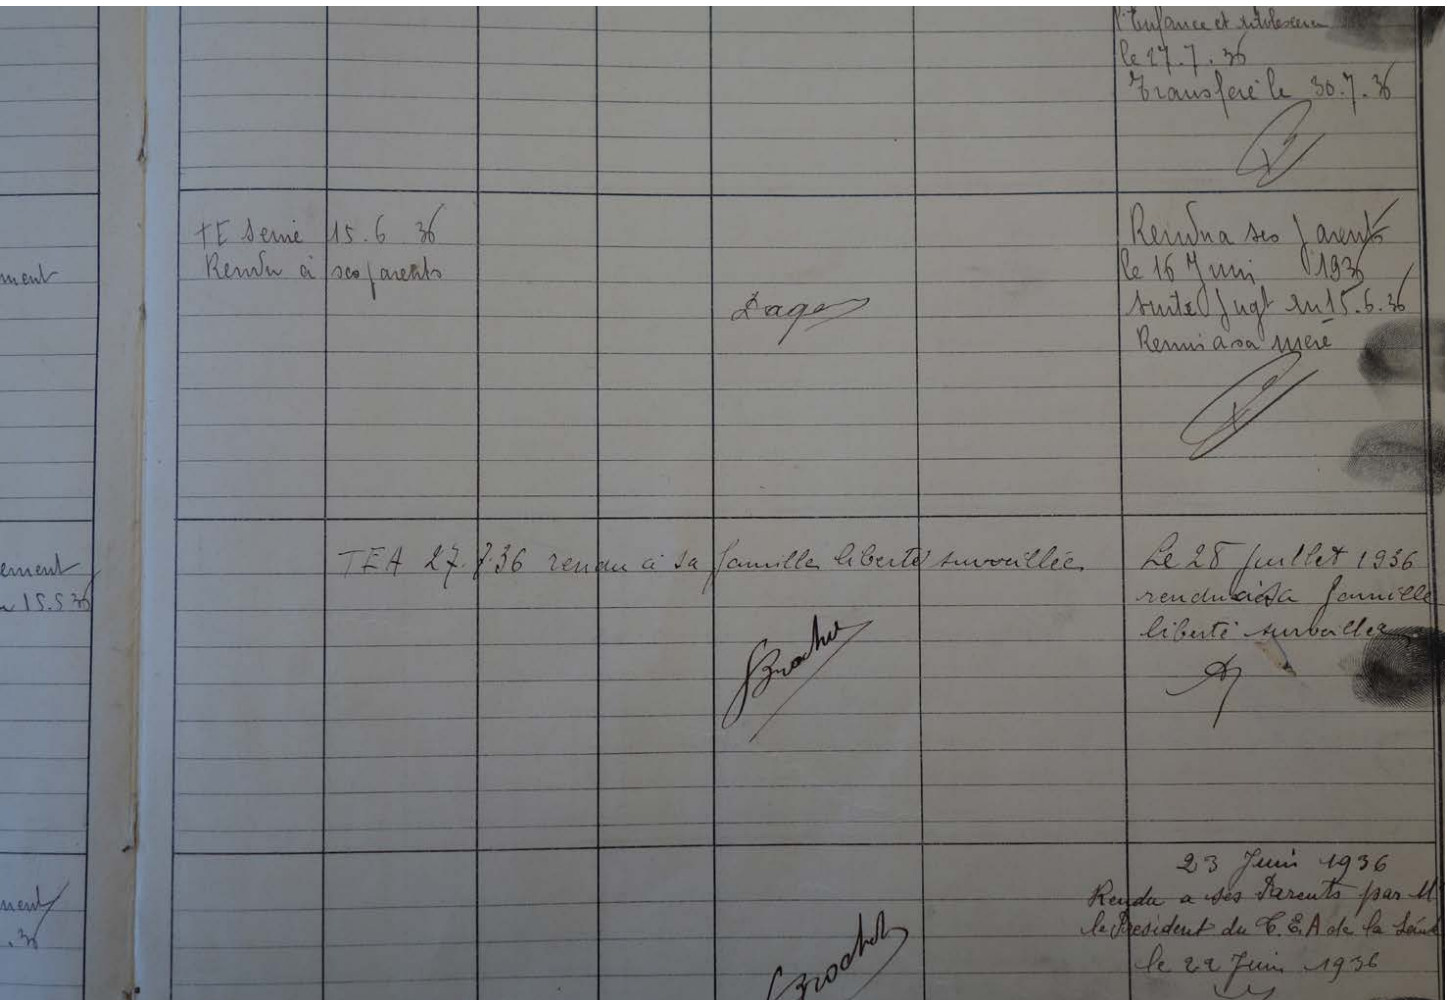 l'Enfance et
le 27.7.36
Transféré le 30.7.36
TE Seine 15.6 36
Rendu à ses parents
Rendu a ses parents
le 16 Juin 1936
suite Jugt du 15.6.36
Remis a sa mère
ment
TEA 27.7.36 rendu à sa famille liberté surveillée
Le 28 juillet 1936
rendu à sa famille
liberté surveillée
ement
15.5 36
23 Juin 1936
Rendu a ses Parents par M
le Président du T.E.A de la Seine
le 22 Juin 1936
Brochet
ment
.36